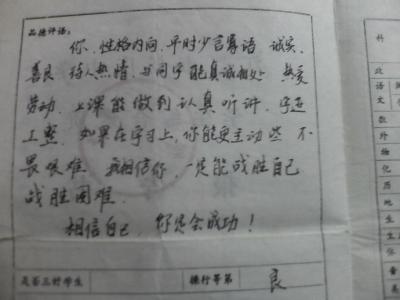 品德评语:
你、性格内向、平时少言寡语 诚实、
善良 待人热情、与同学能真诚相处 热爱
劳动、上课能做到认真听讲、字迹
工整、如果在学习上,你能更主动些 不
畏艰难 我相信你,一定能战胜自己
战胜困难.
相信自己,你定会成功!
是否三好学生
操行等第
良
科
政
语
数
外
物
化
历
地
生
生
体
音
美